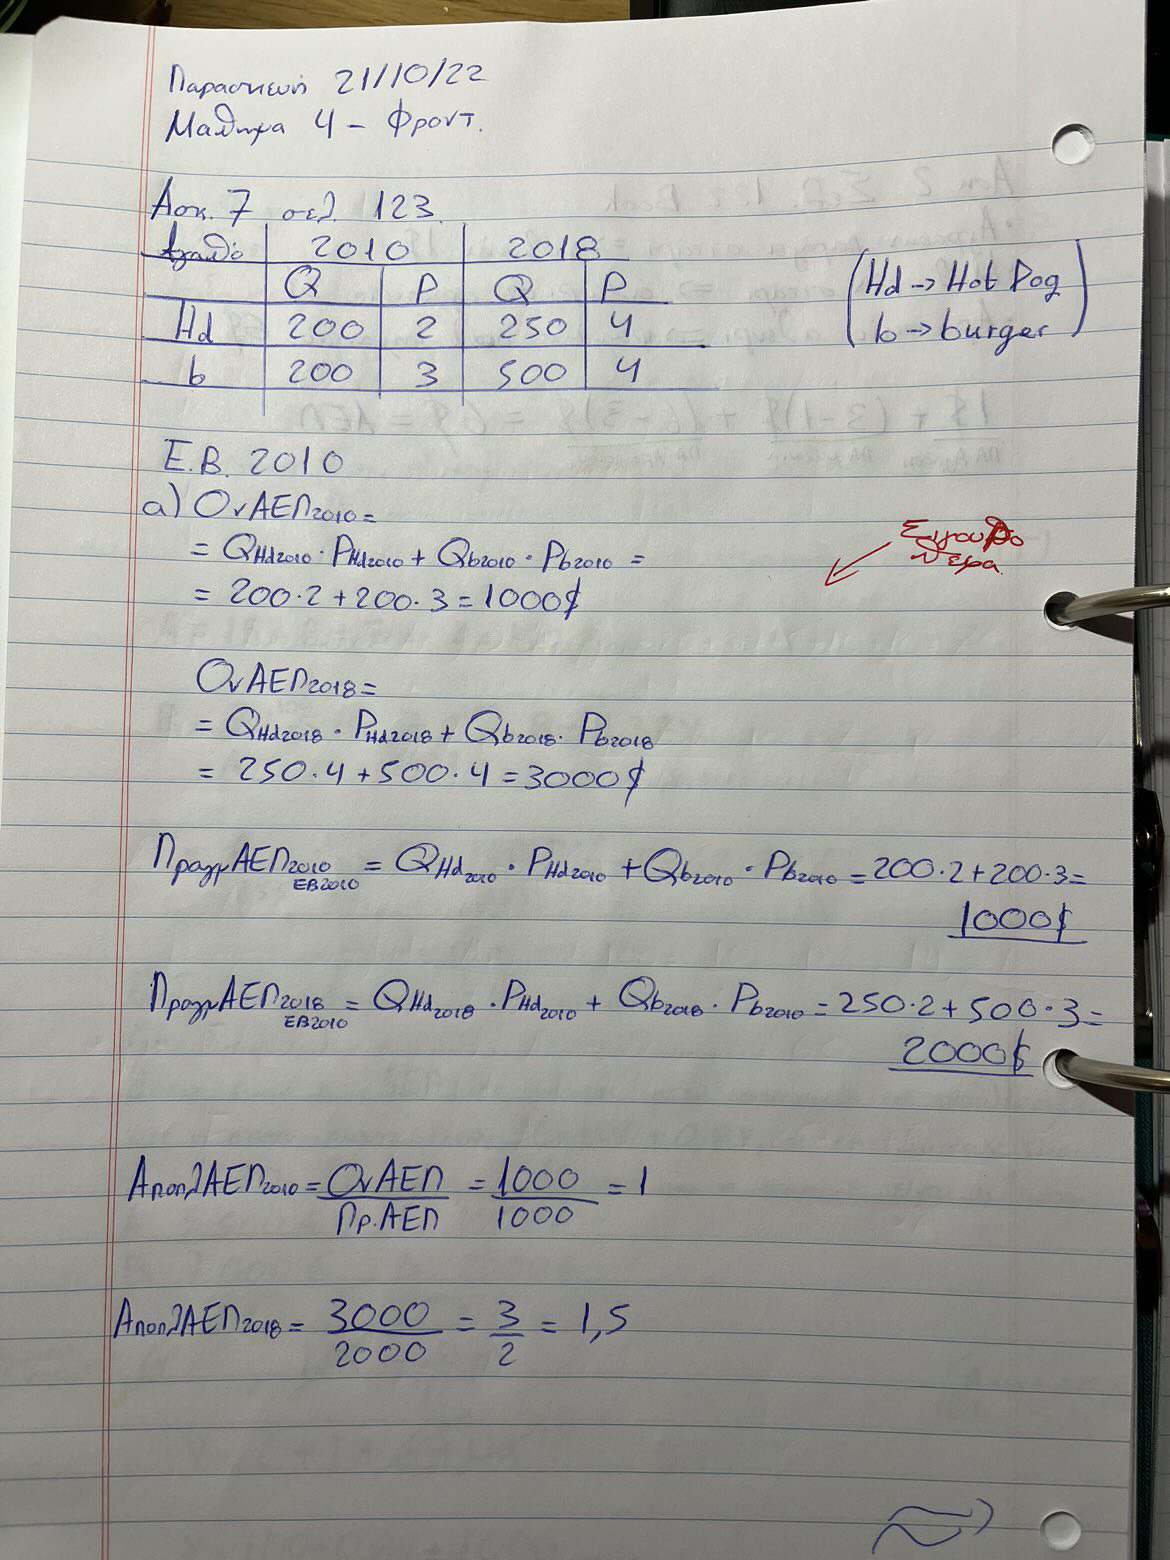 Παρασκευή 21/10/22
Μάθημα 4 - Φροντ.
Ασκ. 7 σελ. 123.
Αγαθό 2010 2018
Q P Q P
Hd 200 2 250 4
b 200 3 500 4
(Hd → Hot Dog
b → burger)
Ε.Β. 2010
α) ΟνΑΕΠ2010 =
= QHd2010 · PHd2010 + Qb2010 · Pb2010 =
= 200·2 + 200·3 = 1000$
Σιγουρο
ΟνΑΕΠ2018 =
= QHd2018 · PHd2018 + Qb2018 · Pb2018
= 250·4 + 500·4 = 3000$
ΠραγμΑΕΠ2010 ΕΒ2010 = QHd2010 · PHd2010 + Qb2010 · Pb2010 = 200·2 + 200·3 =
1000$
ΠραγμΑΕΠ2018 ΕΒ2010 = QHd2018 · PHd2010 + Qb2018 · Pb2010 = 250·2 + 500·3 =
2000$
ΑποπλΑΕΠ2010 = ΟνΑΕΠ/Πρ.ΑΕΠ = 1000/1000 = 1
ΑποπλΑΕΠ2018 = 3000/2000 = 3/2 = 1,5